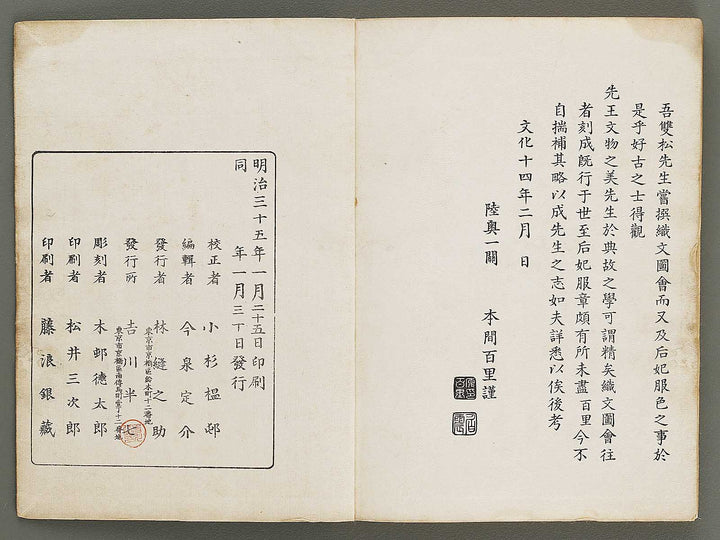 吾雙松先生嘗撰織文圖會而又及后妃服色之事於
是乎好古之士得觀
先王文物之美先生於典故之學可謂精矣織文圖會往
者刻成既行于世至后妃服章頗有所未盡百里今不
自揣補其略以成先生之志如夫詳悉以俟後考
文化十四年二月 日
陸奥一關 本間百里謹
明治三十五年一月二十五日印刷
同 年一月三十日發行
校正者 小杉榲邨
編輯者 今泉定介
發行者 林縫之助
東京市京橋區鈴木町十二番地
發行所 吉川半七
彫刻者 木邨德太郎
印刷者 松井三次郎
印刷者 藤浪銀藏